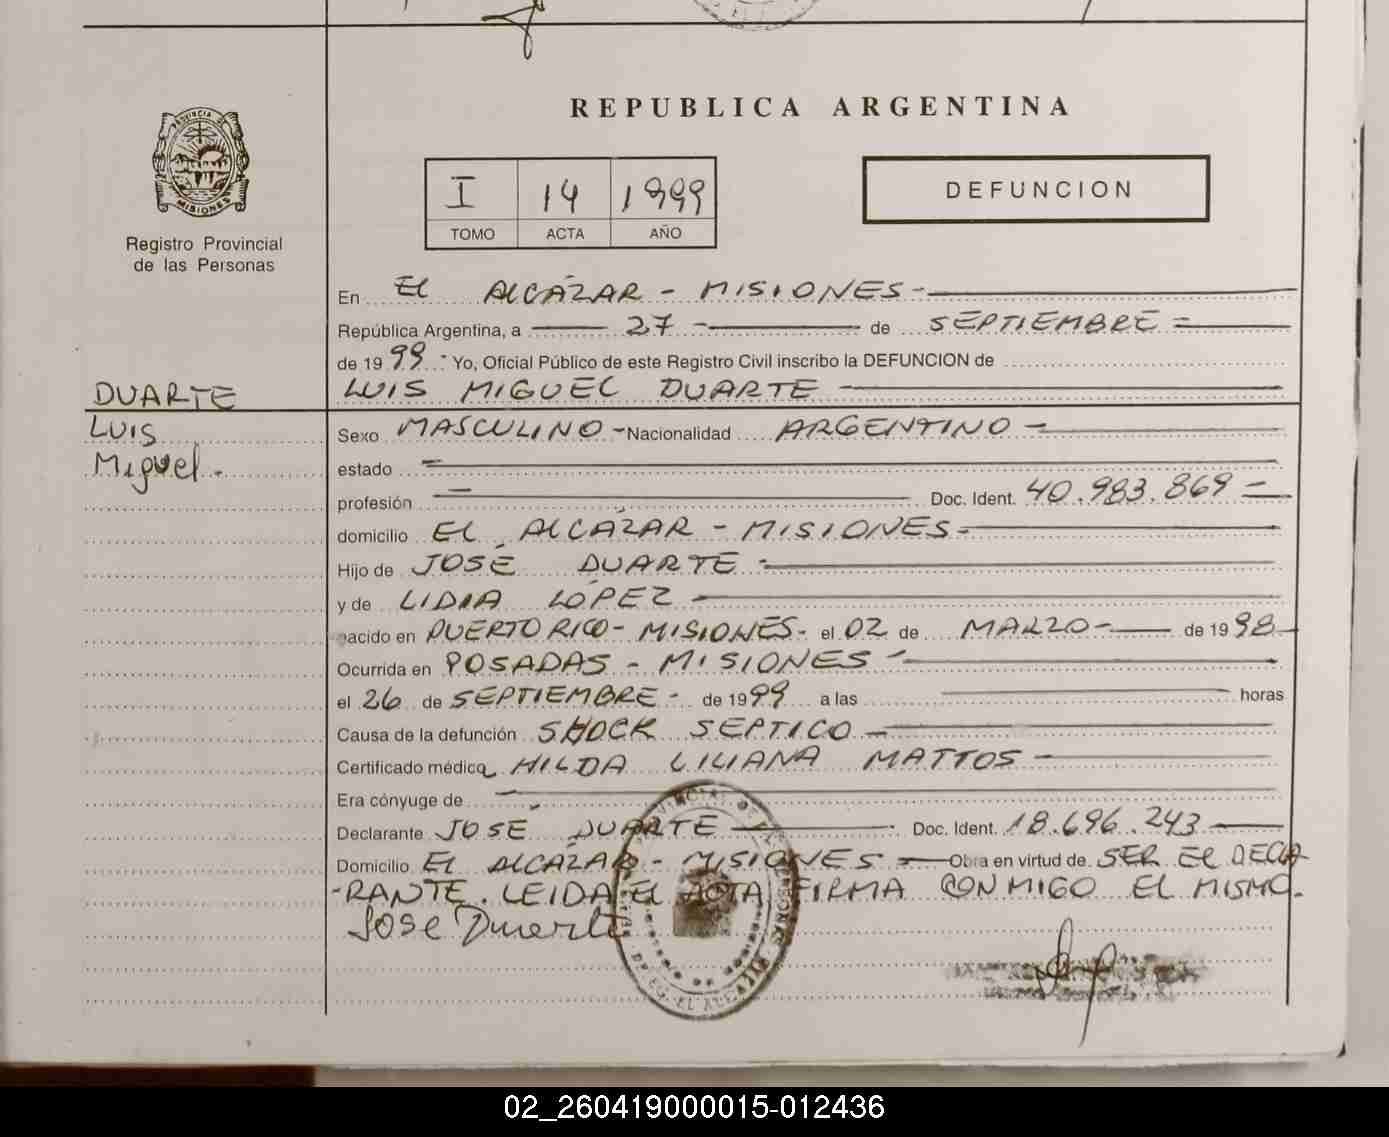 REPUBLICA ARGENTINA
PROVINCIA DE
MISIONES
Registro Provincial
de las Personas
I 14 1999
TOMO ACTA AÑO
DEFUNCION
En El ALCÁZAR - MISIONES -
República Argentina, a 27 - de SEPTIEMBRE =
de 1999 - Yo, Oficial Público de este Registro Civil inscribo la DEFUNCION de
LUIS MIGUEL DUARTE
DUARTE
LUIS
Miguel.
Sexo MASCULINO - Nacionalidad ARGENTINO -
estado
profesión Doc. Ident. 40.983.869 -
domicilio EL ALCÁZAR - MISIONES -
Hijo de JOSÉ DUARTE -
y de LIDIA LÓPEZ -
nacido en PUERTO RICO - MISIONES - el 02 de MARZO - de 1998
Ocurrida en POSADAS - MISIONES -
el 26 de SEPTIEMBRE - de 1999 a las horas
Causa de la defunción SHOCK SEPTICO -
Certificado médico HILDA LILIANA MATTOS -
Era cónyuge de
Declarante JOSÉ DUARTE - Doc. Ident. 18.696.243
Domicilio EL ALCÁZAR - MISIONES - Obra en virtud de SER EL DECLA-
-RANTE. LEIDA EL ACTA FIRMA CONMIGO EL MISMO.
José Duarte
02_260419000015-012436